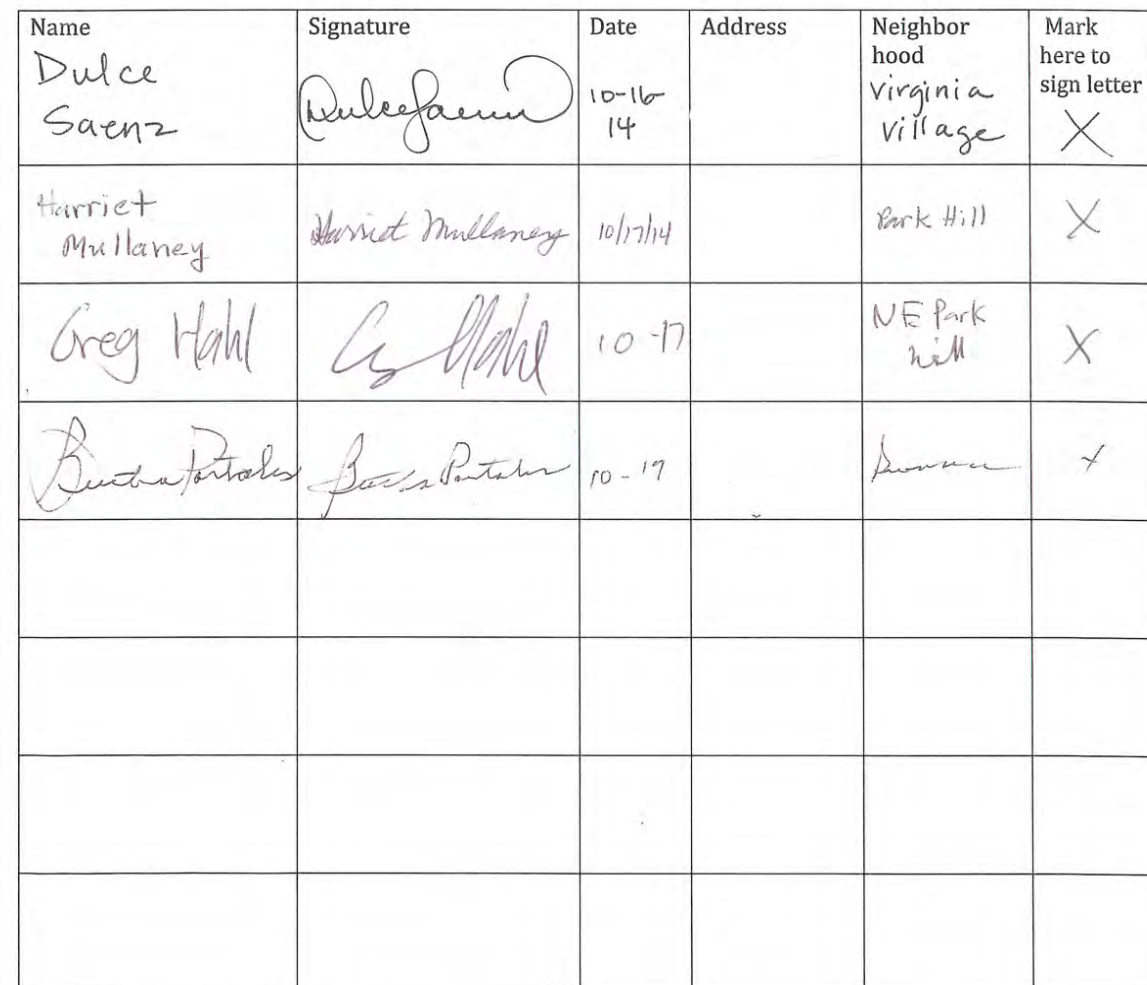 Name Signature Date Address Neighbor Mark
hood here to
sign letter
Dulce
Saenz Dulce Saenz 10-16-
14 Virginia
Village X
Harriet
Mullaney Harriet Mullaney 10/17/14 Park Hill X
Greg Hahl G Hahl 10-17 NE Park
hill X
10-19 X